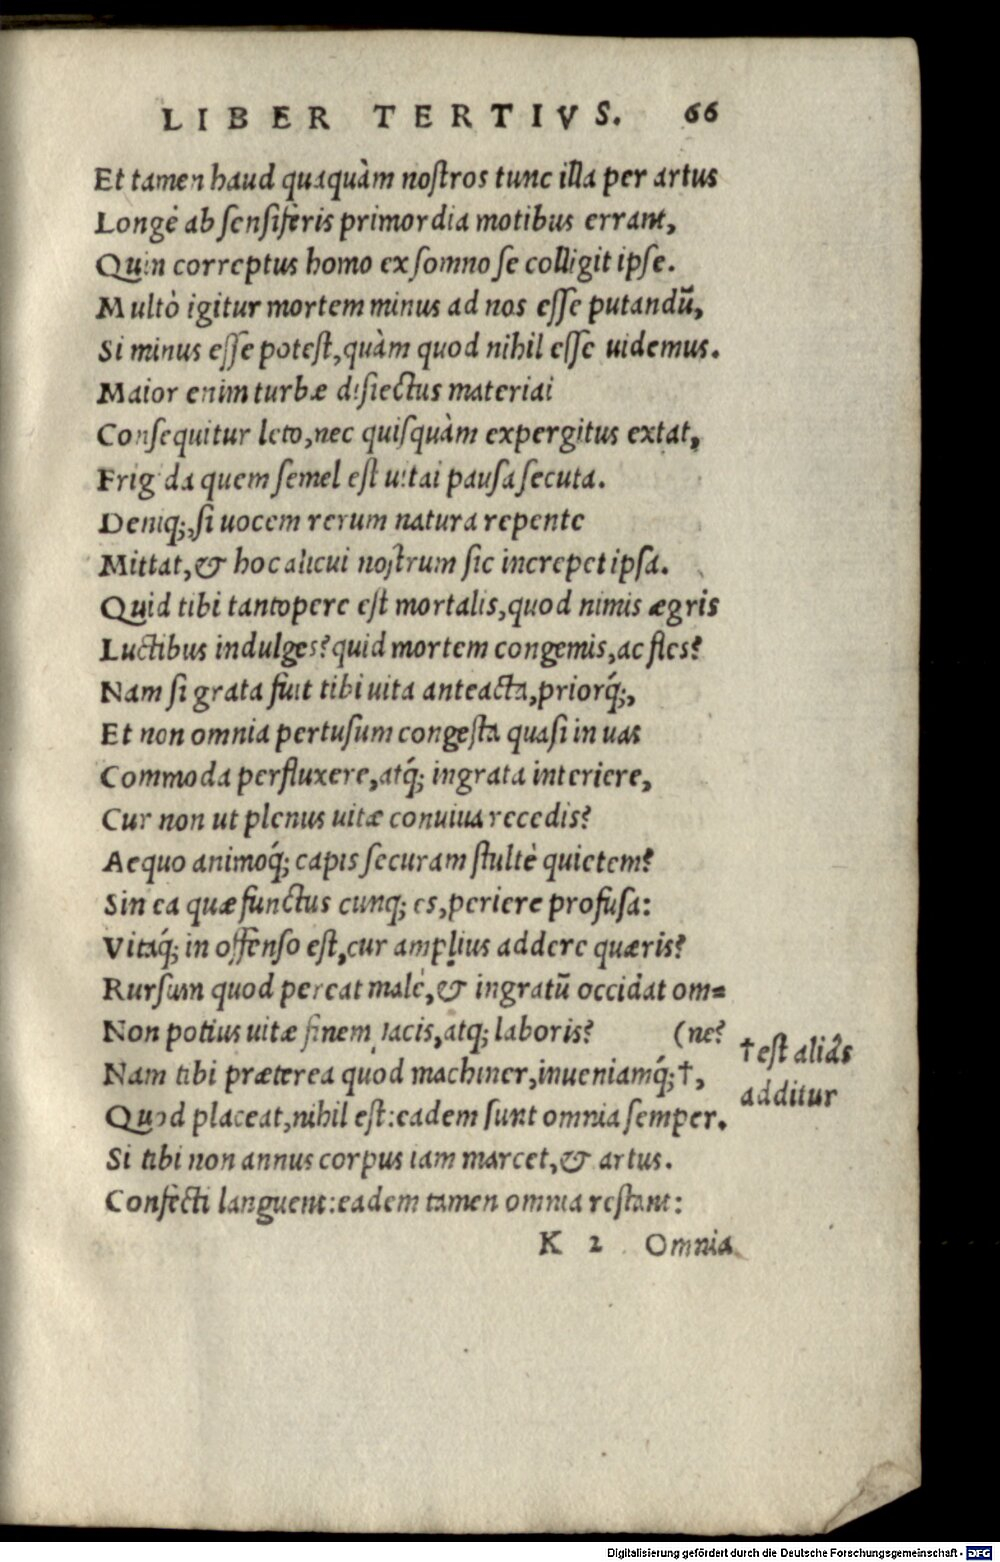 LIBER TERTIVS. 66
Et tamen haud quaquàm nostros tunc illa per artus
Longè ab sensiferis primordia motibus errant,
Quin correptus homo ex somno se colligit ipse.
Multò igitur mortem minus ad nos esse putandũ,
Si minus esse potest, quàm quod nihil esse uidemus.
Maior enim turbæ disiectus materiai
Consequitur leto, nec quisquàm expergitus extat,
Frigida quem semel est uitai pausa secuta.
Deniq;, si uocem rerum natura repente
Mittat, & hoc alicui nostrum sic increpet ipsa.
Quid tibi tantopere est mortalis, quod nimis ægris
Luctibus indulges? quid mortem congemis, ac fles?
Nam si grata fuit tibi uita anteacta, priorq́;,
Et non omnia pertusum congesta quasi in uas
Commoda perfluxere, atq́; ingrata interiere,
Cur non ut plenus uitæ conuiua recedis?
Aequo animoq́; capis securam stultè quietem?
Sin ea quæ functus cunq; es, periere profusa:
Vitaq́; in offenso est, cur amplius addere quæris?
Rursum quod pereat malè, & ingratũ occidat om=
Non potius uitæ finem facis, atq; laboris? (ne?
Nam tibi præterea quod machiner, inueniamq́; †,
† est aliâs
additur
Quod placeat, nihil est: eadem sunt omnia semper.
Si tibi non annus corpus iam marcet, & artus.
Confecti languent: eadem tamen omnia restant:
K 2 Omnia
Digitalisierung gefördert durch die Deutsche Forschungsgemeinschaft - DFG